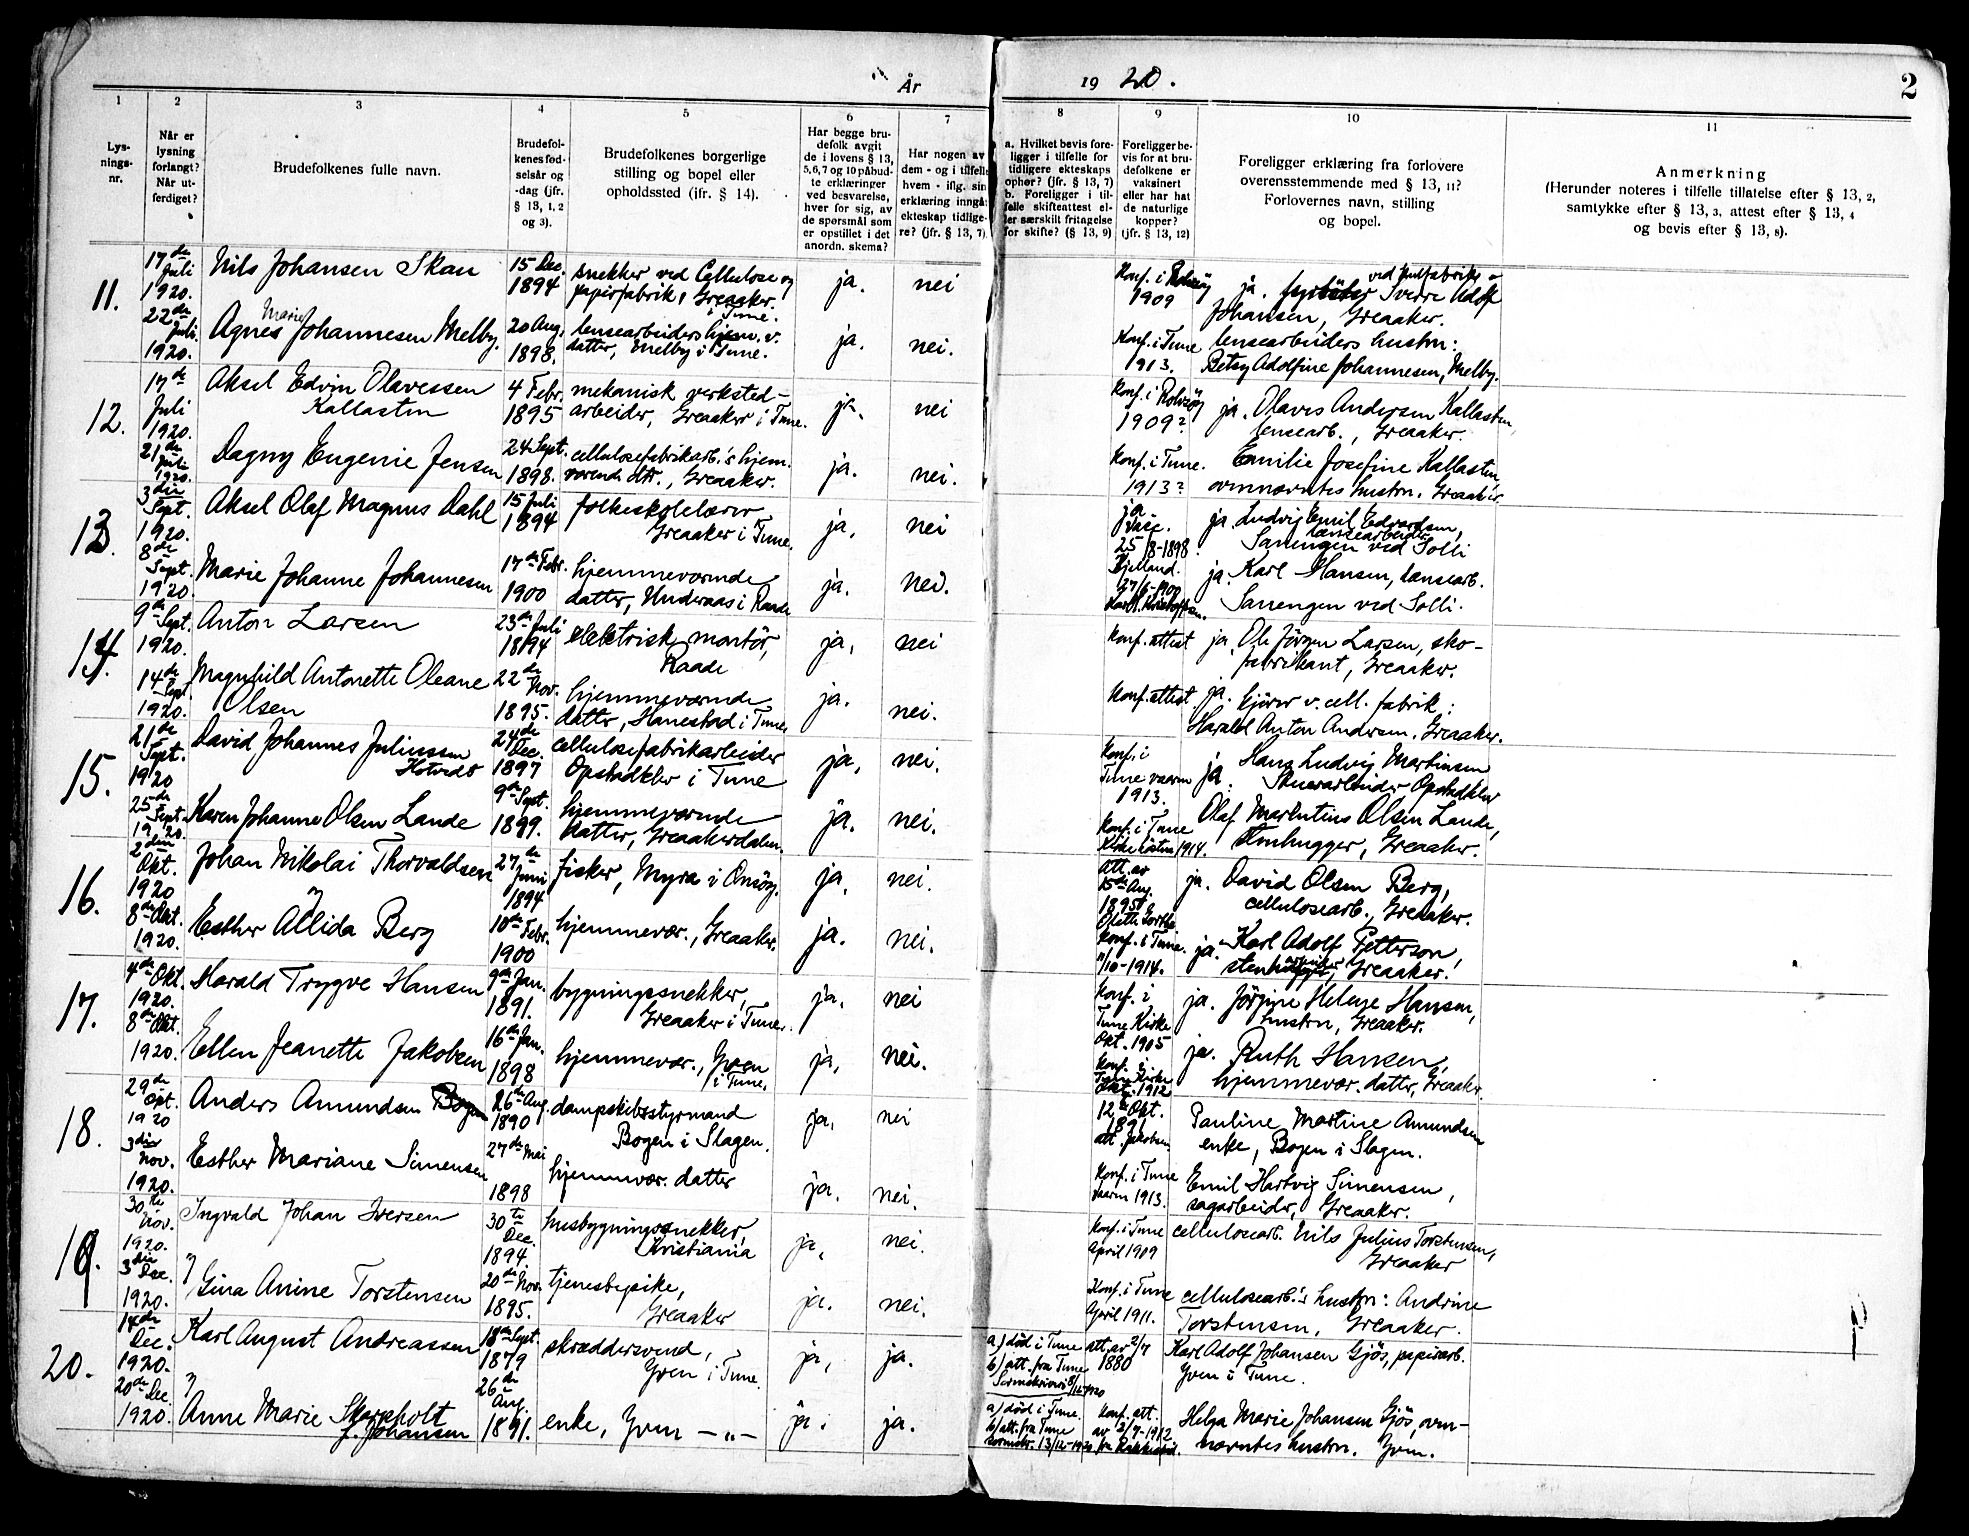 År 1920.
2
1
2
3
4
5
6
7
8
9
10
11
Lys-
nings-
nr.
Når er
lysning
forlangt?
Når ut-
ferdiget?
Brudefolkenes fulle navn.
Brudefol-
kenes fød-
selsår og
-dag (jfr.
§ 13, 1, 2
og 3).
Brudefolkenes borgerlige
stilling og bopel eller
opholdssted (ifr. § 14).
Har begge bru-
defolk avgit
de i lovens § 13,
5, 6, 7 og 10 påbud-
te erklæringer
ved besvarelse,
hver for sig, av
de spørsmål som
er opstillet i det
anordn. skema?
Har nogen av
dem - og i tilfelle
hvem - iflg. sin
erklæring inngåt
ekteskap tidlige-
re? (jfr. § 13, 7)
a. Hvilket bevis fore-
ligger i tilfelle for
tidligere ekteskaps
ophør? (jfr. § 13, 7)
b. Foreligger i til-
felle skifteattest el-
ler særskilt fritagelse
for skifte? (§ 13, 9)
Foreligger be-
vis for at bru-
defolkene er
vaksinert
eller har hat
de naturlige
kopper?
(jfr. § 13, 12)
Foreligger erklæring fra forlovere
overensstemmende med § 13, 11?
Forlovernes navn, stilling
og bopel.
Anmerkning
(Herunder noteres i tilfelle tillatelse efter § 13, 2,
samtykke efter § 13, 3, attest efter § 13, 4
og bevis efter § 13, 8).
11.
17de Juli 1920.
Nils Johansen Skau
15 Dec. 1894
snekker ved Cellulose og
papirfabrik, Greaaker i Tune.
ja.
nei
Konf. i Rolvsöy 1909
ja. ved
Sverre Adolf
Johansen, Greaaker.
22de Juli 1920.
Agnes Marie Johannesen Melby.
20 Aug. 1898.
lensearbeiders hjem. v.
datter, Melby i Tune.
ja.
nei.
Konf. i Tune 1913.
lensearbeiders hustru:
Betsy Adolfine Johannesen, Melby.
12.
17de Juli 1920.
Aksel Edvin Olavessen
Kallasten
4 Febr. 1895
mekanisk verksted-
arbeider, Greaaker i Tune.
ja.
nei
Konf. i Rolvsöy 1909?
ja. Olaves Andersen Kallasten,
lensearb., Greaaker.
21de Juli 1920.
Dagny Eugenie Jensen
24 Sept. 1898.
cellulosefabrikarb.'s hjem.
værende dtr., Greaaker.
ja.
nei.
Konf. i Tune. 1913?
Emilie Josefine Kallasten,
ovennævntes hustru. Greaaker
13.
3die Sept. 1920.
Aksel Olaf Magnus Dahl
15 Juli 1894
folkeskolelærer
Greaaker i Tune.
ja.
nei
ja
25/8-1898.
ja. Ludvig Emil Edvardsen,
lensearbeider
Sanengen ved Solli
8de Sept. 1920.
Marie Johanne Johannesen
17de Febr. 1900
hjemmeværende
datter, Underaas i Raade
ja.
nei.
Kjelland.
27/6-1900
ja. Karl Hansen, lensearb.
Sanengen ved Solli.
14.
9de Sept. 1920.
Anton Larsen
23de Juli 1894
elektrisk montör,
Raade
ja,
nei
Konf. attest
ja. Ole Jörgen Larsen, sko-
fabrikant, Greaaker.
14de Sept. 1920.
Magnhild Antonette Oleane
Olsen
22de Nov. 1895.
hjemmeværende
datter, Hanestad i Tune
ja.
nei.
Konf. attest
ja. kjörer v. cell. fabrik:
Harald Anton Andersen, Greaaker.
15.
21de Sept. 1920
David Johannes Juliussen
Hotvedt
24de Dec. 1897
cellulosefabrikarbeider
Opstadkler i Tune
ja,
nei.
Konf. i
Tune vaaren
1913.
ja. Hans Ludvig Martinsen
Opstadkler
25de Sept. 1920.
Karen Johanne Olsen Lande
9de Sept. 1899.
hjemmeværende
datter, Greaakerdalen.
ja.
nei.
Konf. i Tune
Kirke hösten 1914.
Olaf Marentius Olsen Lande,
stenhugger, Greaaker.
16.
2den Okt. 1920
Johan Nikolai Thorvaldsen
27de Juni 1894
fisker, Myra i Onsöy.
ja,
nei.
att. av
15de Aug.
1895
ja. David Olsen Berg,
cellulosearb., Greaaker.
8de Okt. 1920.
Esther Allida Berg
10de Febr. 1900
hjemmevær., Greaaker.
ja.
nei.
Konf. i Tune.
11/10-1914.
ja. Karl Adolf Petterson,
Greaaker.
17.
4de Okt. 1920.
Harald Trygve Hansen
9de Jan. 1891.
bygningssnekker,
Greaaker i Tune.
ja,
nei
Konf. i
Tune Kirke
Okt. 1905
ja. Jörgine Helene Hansen,
hustru, Greaaker.
8de Okt. 1920.
Ellen Jeanette Jakobsen
16de Jan. 1898
hjemmevær., Yven
i Tune.
ja,
nei.
Konf. i
Tune Kirke
Okt. 1912
ja. Ruth Hansen,
hjemmevær. datter, Greaaker.
18.
29de Okt. 1920
Anders Amundsen Bogen
26de Aug. 1890
dampskibsstyrmand
Bogen i Slagen.
ja,
nei
12te Okt.
1891
att. Jakobsen
Pauline Martine Amundsen
enke, Bogen i Slagen.
3die Nov. 1920.
Esther Mariane Simensen
27de Mai 1898
hjemmevær. datter
ja.
nei.
Konf. i Tune
vaaren 1913.
Emil Hartvig Simensen,
sagarbeider, Greaaker.
19.
30te Nov. 1920.
Ingvald Johan Iversen
30te Dec. 1894.
husbygningssnekker,
Kristiania
ja,
nei.
Konf. i Tune
April 1909
cellulosearb. Nils Julius Torstensen,
Greaaker
3die Dec. 1920.
Gina Anine Torstensen
20de Nov. 1895.
tjenestepike,
Greaaker
ja.
nei.
Konf. i Tune
April 1911.
cellulosearb.'s hustru: Andrine
Torstensen, Greaaker.
20.
14de Dec. 1920.
Karl August Andreassen
18de Sept. 1879
skræddersvend,
Yven i Tune.
ja,
ja.
a) död i Tune
b) att. fra Tune
Sorenskriveri 8/12-1920
att. av 2/7
1880
Karl Adolf Johansen Gjös, papirarb.
Yven i Tune.
20de Dec. 1920.
Anne Marie Skarpholt
f. Johansen
26de Aug. 1891.
enke, Yven -„-
ja.
ja.
a) död i Tune.
b) att. fra Tune
sorenskr. 13/12-1920
Konf. att.
av 2/7-1912
fra Rakkestad.
Helga Marie Johansen Gjös, oven-
nævntes hustru. Yven.